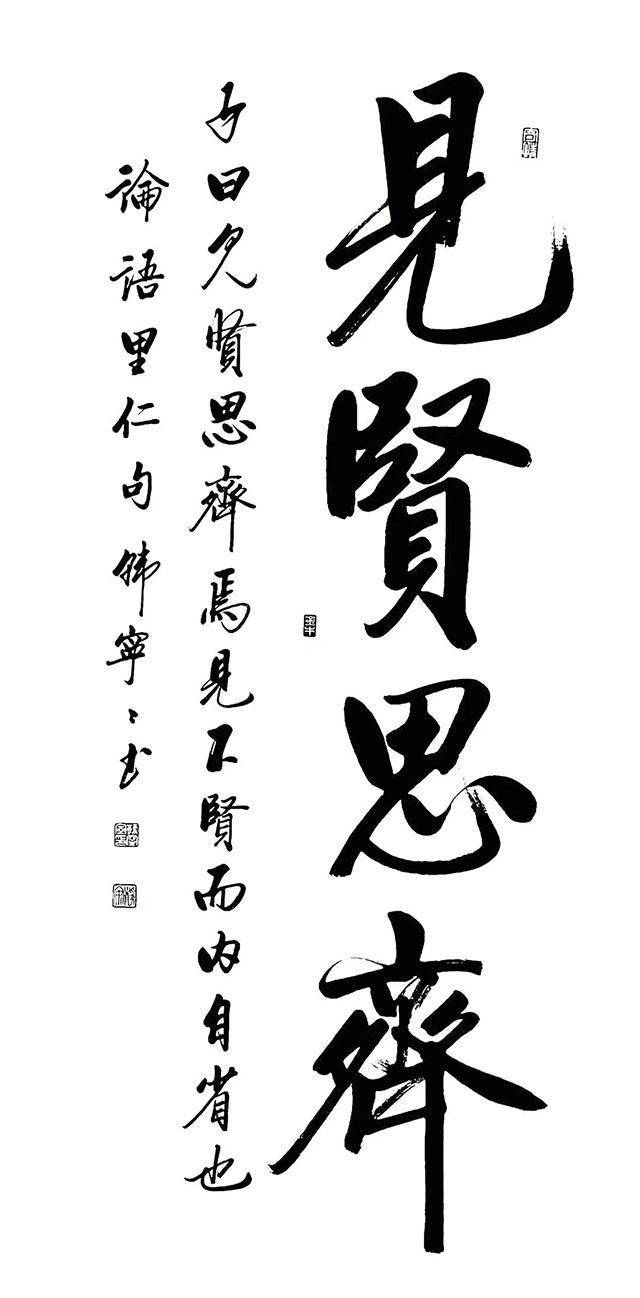 見賢思齊
子曰見賢思齊焉見不賢而内自省也
論語里仁句韓寧〻書